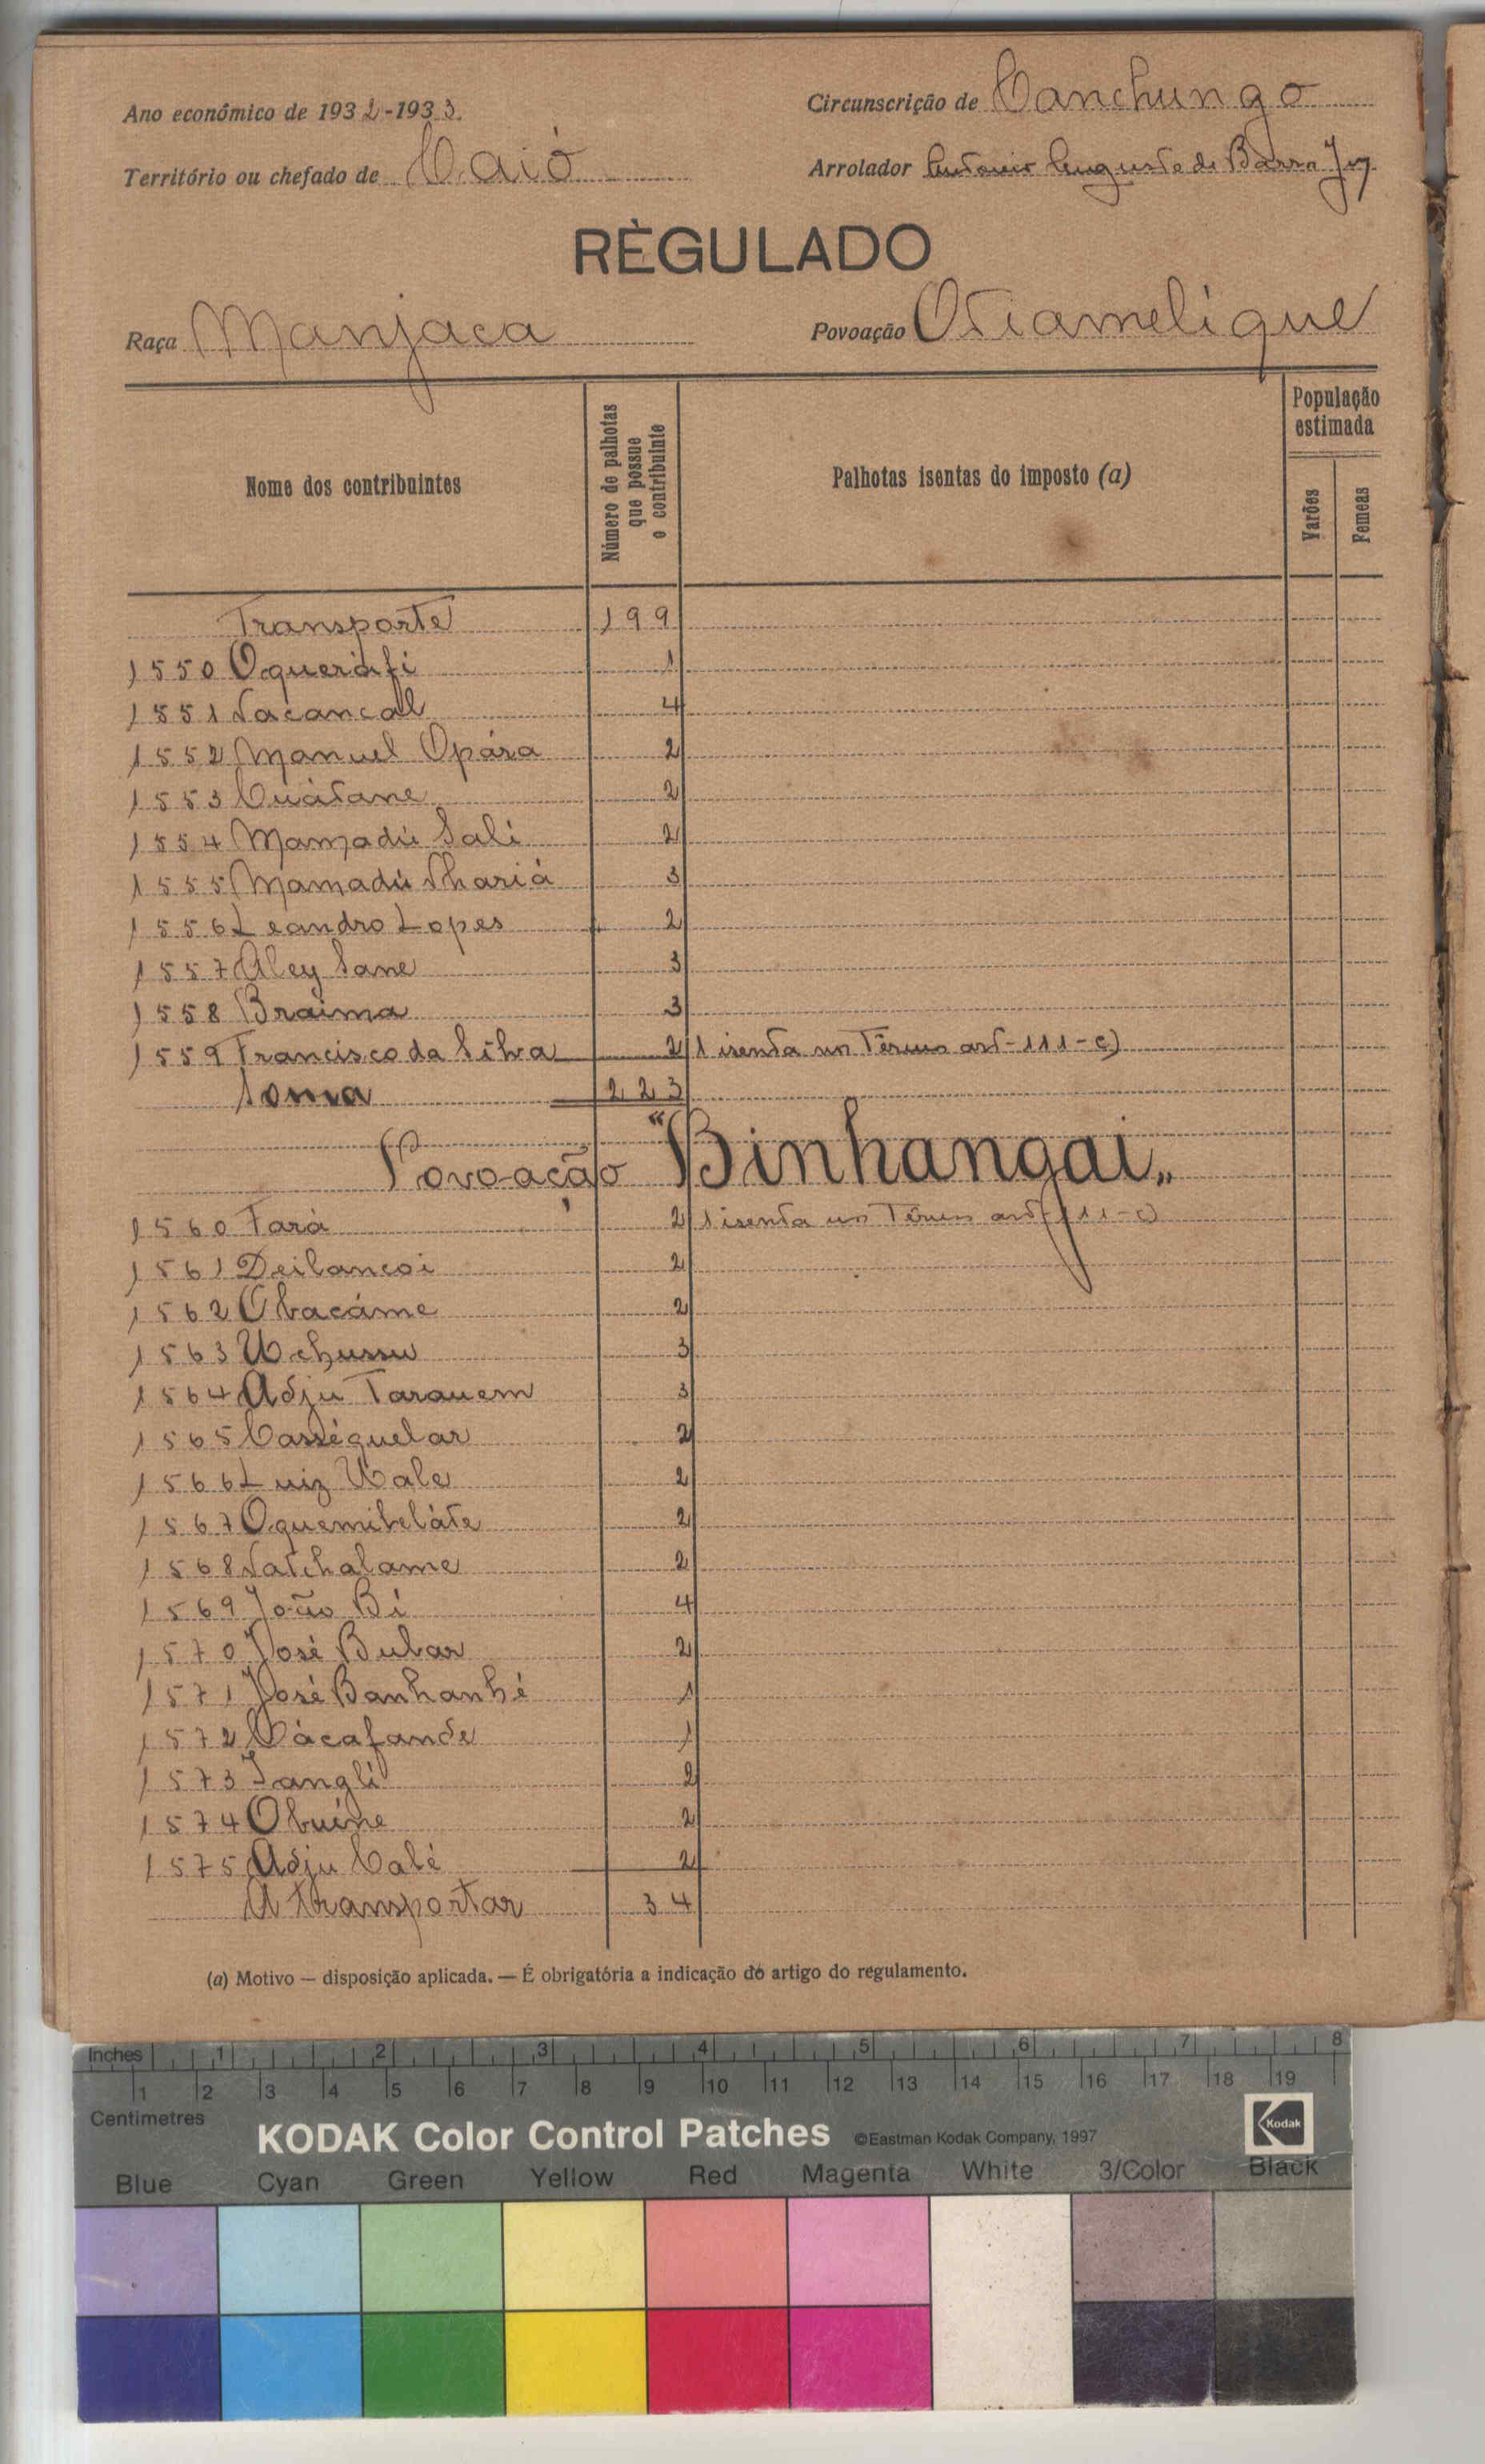 Ano económico de 1932-1933.
Circunscrição de Canchungo
Território ou chefado de Caió
Arrolador Antonio Augusto de Barra Jor
RÈGULADO
Raça Manjaca
Povoação Otiamelique
Nome dos contribuintes
Número de palhotas que possue o contribuinte
Palhotas isentas do imposto (a)
População estimada
Varões
Femeas
Transporte 199
1550 Oqueriafi 1
1551 Nacancal 4
1552 Manuel Opára 2
1553 Cuátane 2
1554 Mamadú Sali 2
1555 Mamadú Nhariá 3
1556 Leandro Lopes 2
1557 Aley Sane 3
1558 Braima 3
1559 Francisco da Silva 2 1 isenta nos Têrmos art-111-c)
Soma 223
Povoação "Binhangai"
1560 Fará 2 1 isenta nos Têrmos art-111-c)
1561 Deilancoi 2
1562 Obacáme 2
1563 Uchussu 3
1564 Adju Tarauem 3
1565 Casséquelar 2
1566 Luiz Uale 2
1567 Oquemibeláte 2
1568 Natchalame 2
1569 João Bi 4
1570 José Bubar 2
1571 José Banhanhé 1
1572 Cácafande 1
1573 Jangli 2
1574 Obuíne 2
1575 Adju Calé 2
A transportar 34
(a) Motivo — disposição aplicada. — É obrigatória a indicação do artigo do regulamento.
Inches 1 2 3 4 5 6 7 8
1 2 3 4 5 6 7 8 9 10 11 12 13 14 15 16 17 18 19
Centimetres
KODAK Color Control Patches ©Eastman Kodak Company, 1997 Kodak
Blue Cyan Green Yellow Red Magenta White 3/Color Black